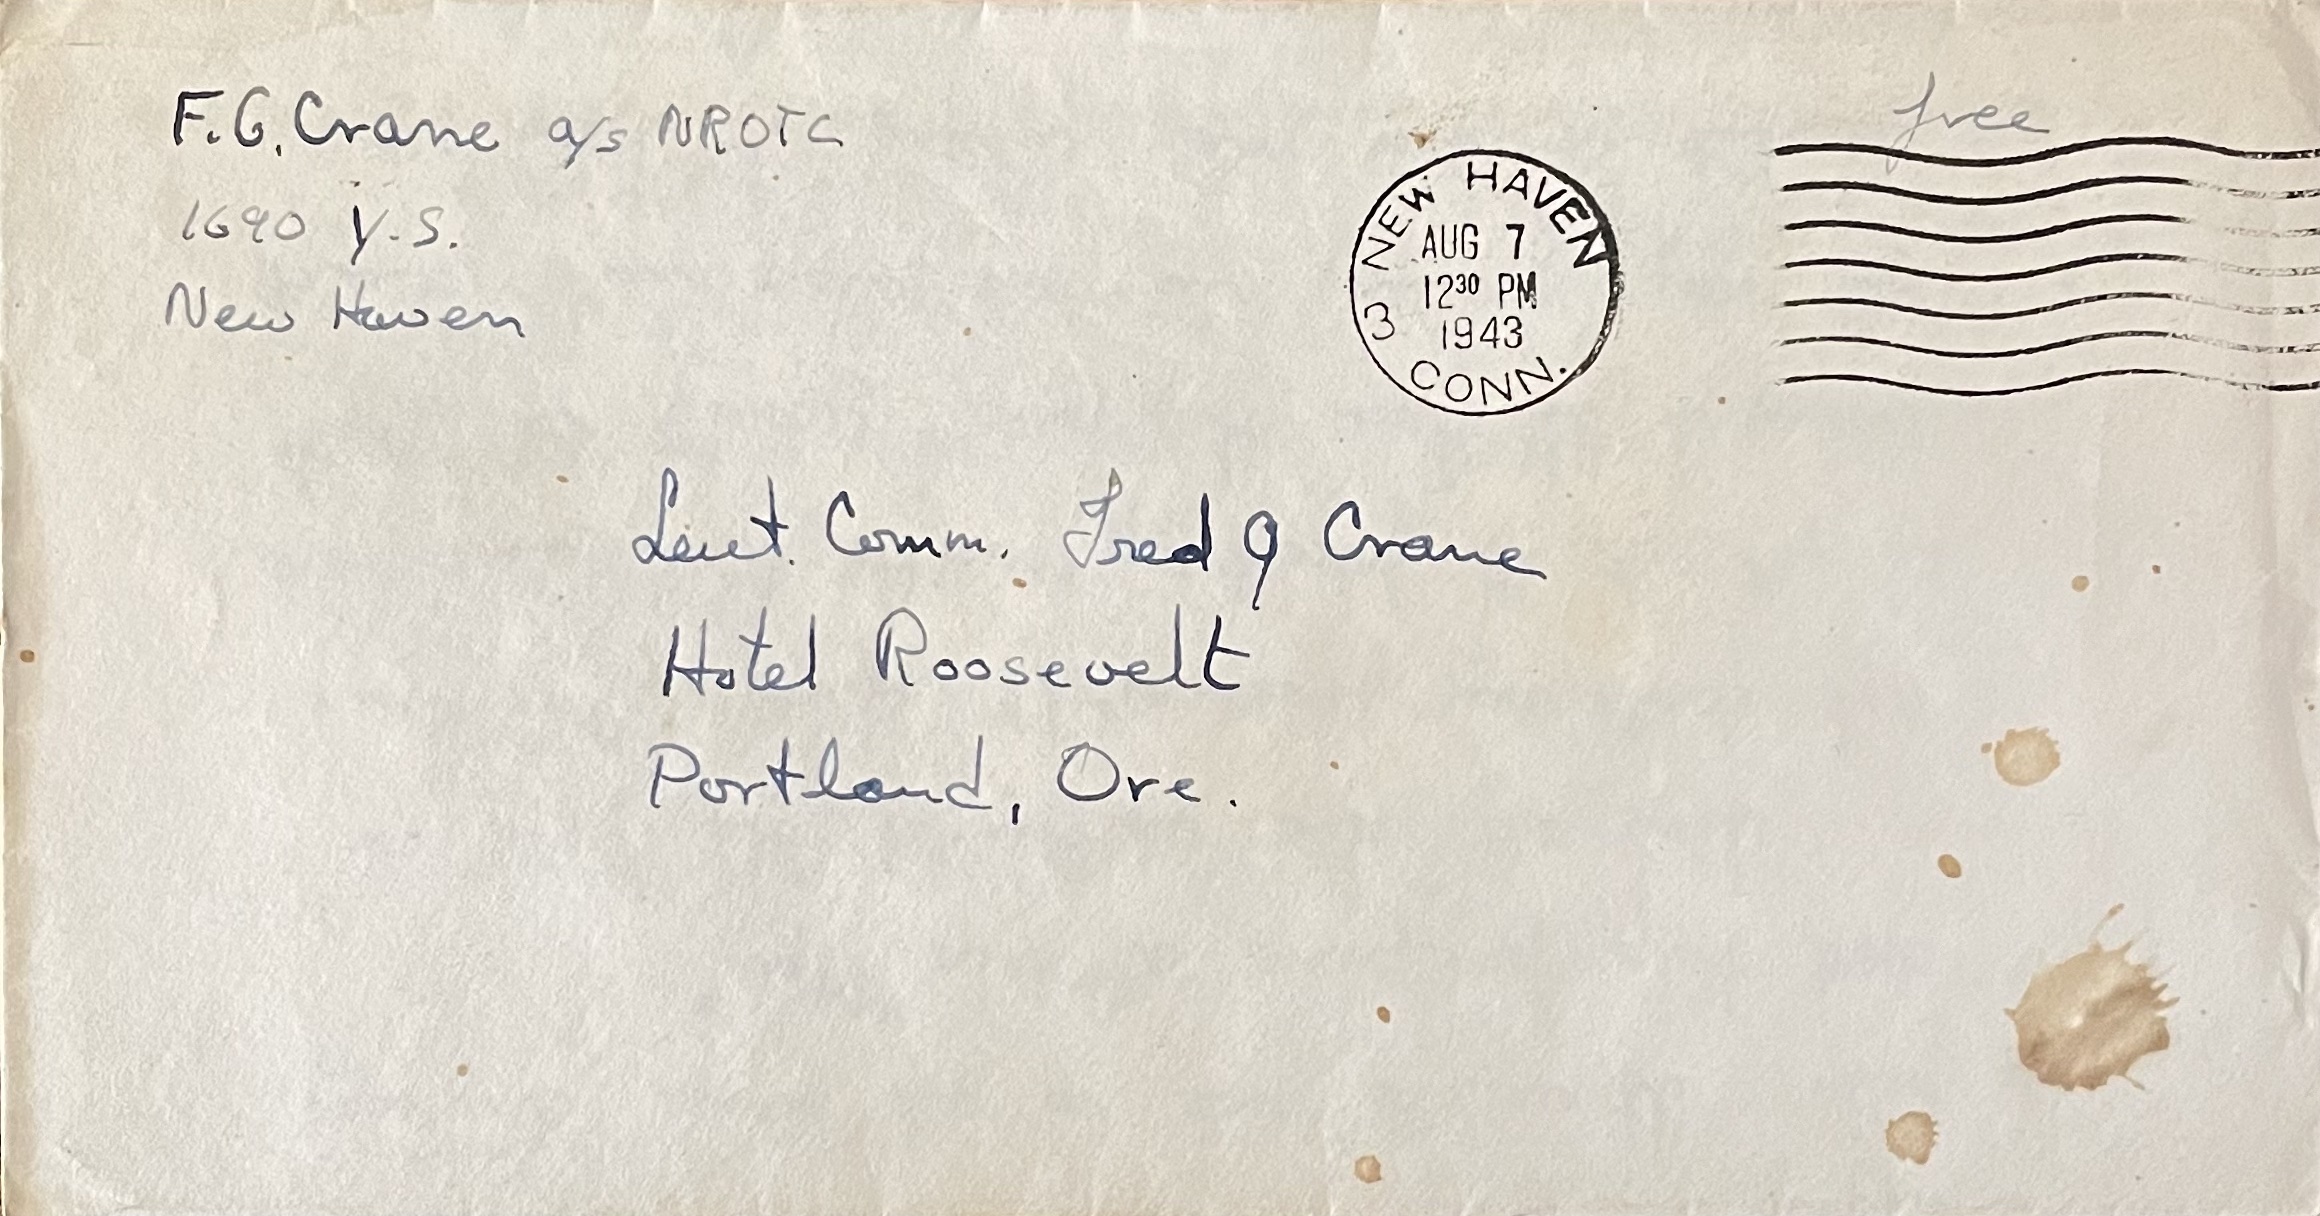 F.G. Crane a/s NROTC
1690 Y.S.
New Haven
free
NEW HAVEN
AUG 7
12³⁰ PM
1943
3
CONN.
Lieut. Comm. Fred J Crane
Hotel Roosevelt
Portland, Ore.